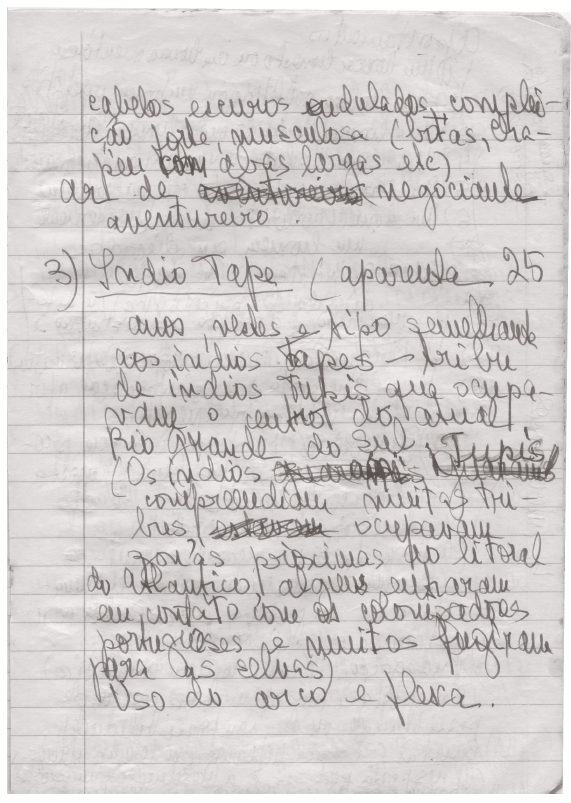 cabelos escuros ondulados, complei-
ção forte, musculosa (botas, cha-
péu com abas largas etc)
ar de aventureiro negociante
aventureiro.
3) Índio Tape (aparenta 25
anos, vestes e tipo semelhante
aos índios tapes – tribu
de índios Tupis que ocupa-
vam o centro do atual
Rio Grande do Sul. Tupis
(Os índios guaranis
compreendiam muitas tri-
bus, ocupavam
zonas próximas ao litoral
do Atlantico, alguns entraram
em contato com os colonizadores
portugueses e muitos fugiram
para as selvas)
Uso do arco e flexa.